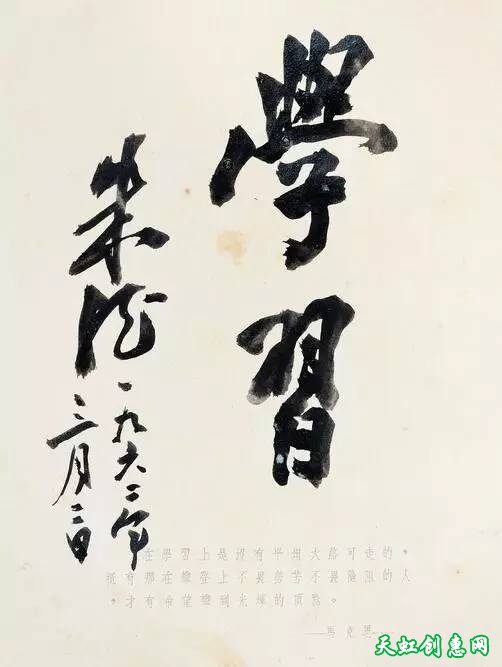 學習
朱德
一九六二年
三月二日
在學習上是沒有平坦大路可走的，
祇有那在攀登上不畏勞苦不畏險阻的人
，才有希望攀到光輝的頂點。
——馬克思——
天虹创惠网